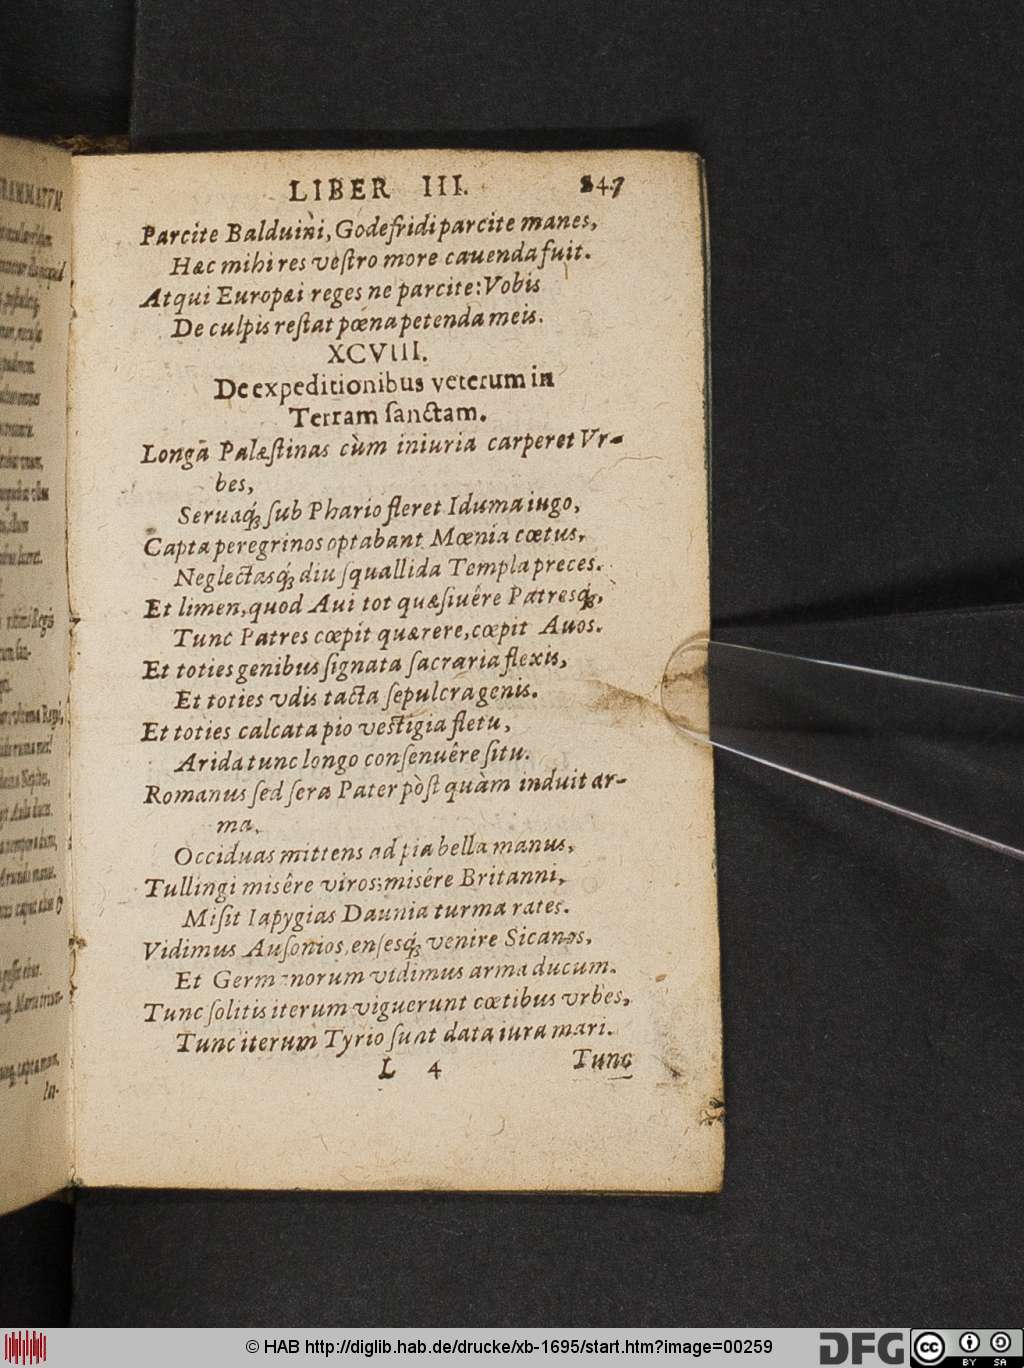 LIBER III. 247
Parcite Balduini, Godefridi parcite manes,
Hæc mihi res vestro more cauenda fuit.
Atqui Europæi reges ne parcite: Vobis
De culpis restat pœna petenda meis.
XCVIII.
De expeditionibus veterum in
Terram sanctam.
Longā Palæstinas cùm iniuria carperet Vr-
bes,
Seruaq́; sub Phario fleret Iduma iugo,
Capta peregrinos optabant Mœnia cœtus,
Neglectasq́; diu squallida Templa preces.
Et limen, quod Aui tot quæsiuêre Patresq́;,
Tunc Patres cœpit quærere, cœpit Auos.
Et toties genibus signata sacraria flexis,
Et toties vdis tacta sepulcra genis.
Et toties calcata pio vestigia fletu,
Arida tunc longo consenuêre situ.
Romanus sed sera Pater pòst quàm induit ar-
ma,
Occiduas mittens ad pia bella manus,
Tullingi misêre viros; misére Britanni,
Misit Iapygias Daunia turma rates.
Vidimus Ausonios, ensesq́; venire Sicanos,
Et Germanorum vidimus arma ducum.
Tunc solitis iterum viguerunt cœtibus vrbes,
Tunc iterum Tyrio sunt data iura mari.
L 4 Tunc
© HAB http://diglib.hab.de/drucke/xb-1695/start.htm?image=00259 DFG cc BY SA